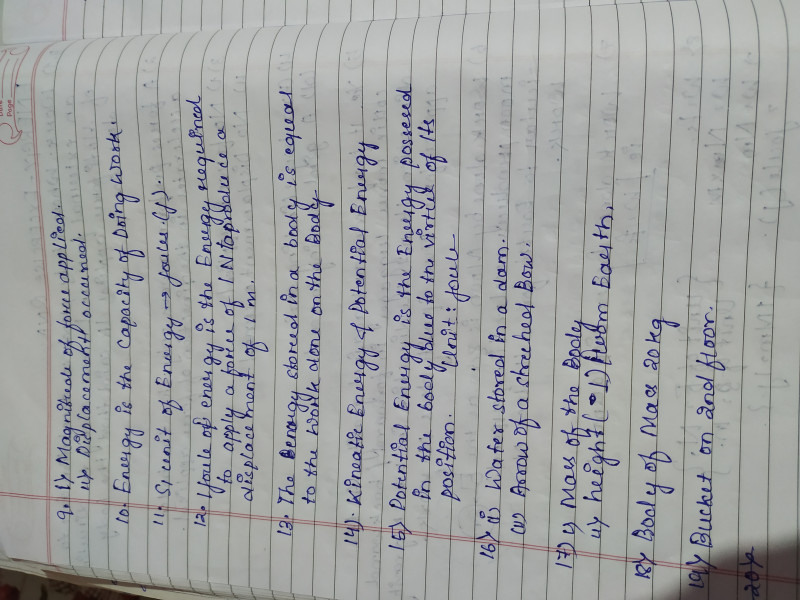 Date
Page
9. i) Magnitude of force applied.
ii) Displacement occurred.
10. Energy is the capacity of Doing work.
11. SI unit of Energy → Joule (J).
12. 1 Joule of energy is the Energy required
to apply a force of 1 N to produce a
displacement of 1 m.
13. The energy stored in a body is equal
to the work done on the body
14). Kineatic Energy & Potential Energy
15) Potential Energy is the Energy possessed
in the body due to the virtue of its
position. Unit: joule
16) (i) Water stored in a dam.
(ii) Arrow of a streched Bow.
17) i) Mass of the Body
ii) height ( ) from Earth.
18) Body of Mass 20 kg
19) Bucket on 2nd floor.
20)